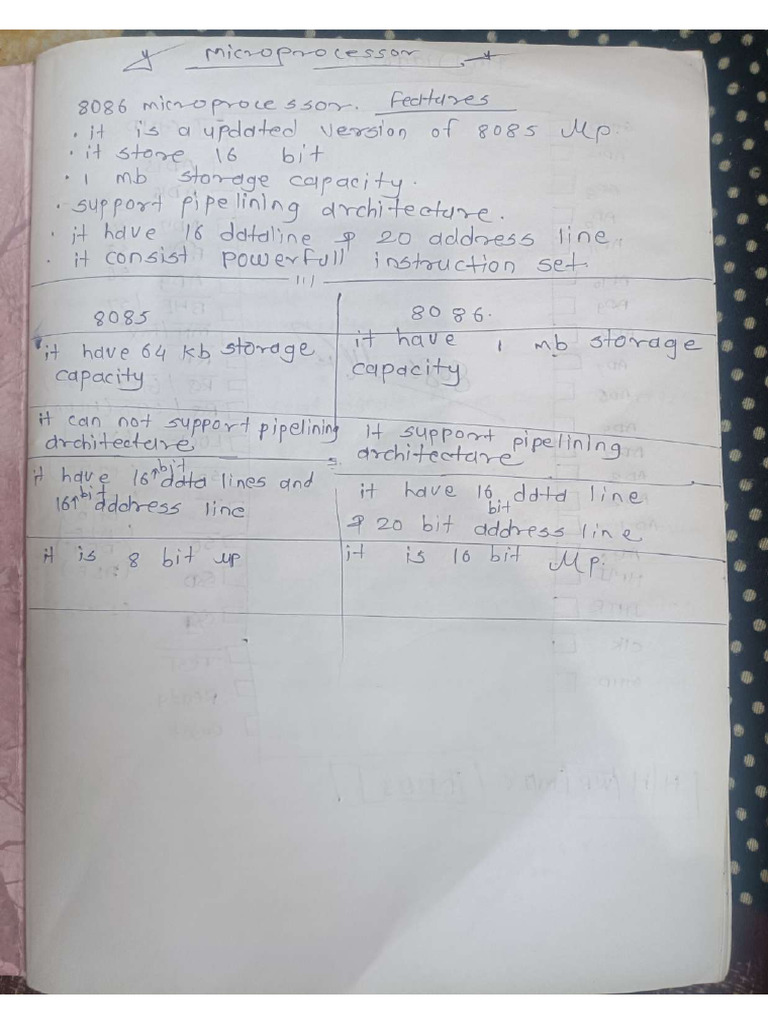 microprocessor
8086 microprocessor. Fectures
• it is a updated version of 8085 Mp
• it store 16 bit
• 1 mb storage capacity.
• support pipelining architecture.
• it have 16 dataline & 20 address line
• it consist powerfull instruction set
8085
8086.
it have 64 kb storage
capacity
it have 1 mb storage
capacity
it can not support pipelining
architectare
It support pipelining
architectare
it have 16 bit data lines and
16 bit address line
it have 16 bit data line
& 20 bit address line
it is 8 bit up
it is 16 bit Mp.